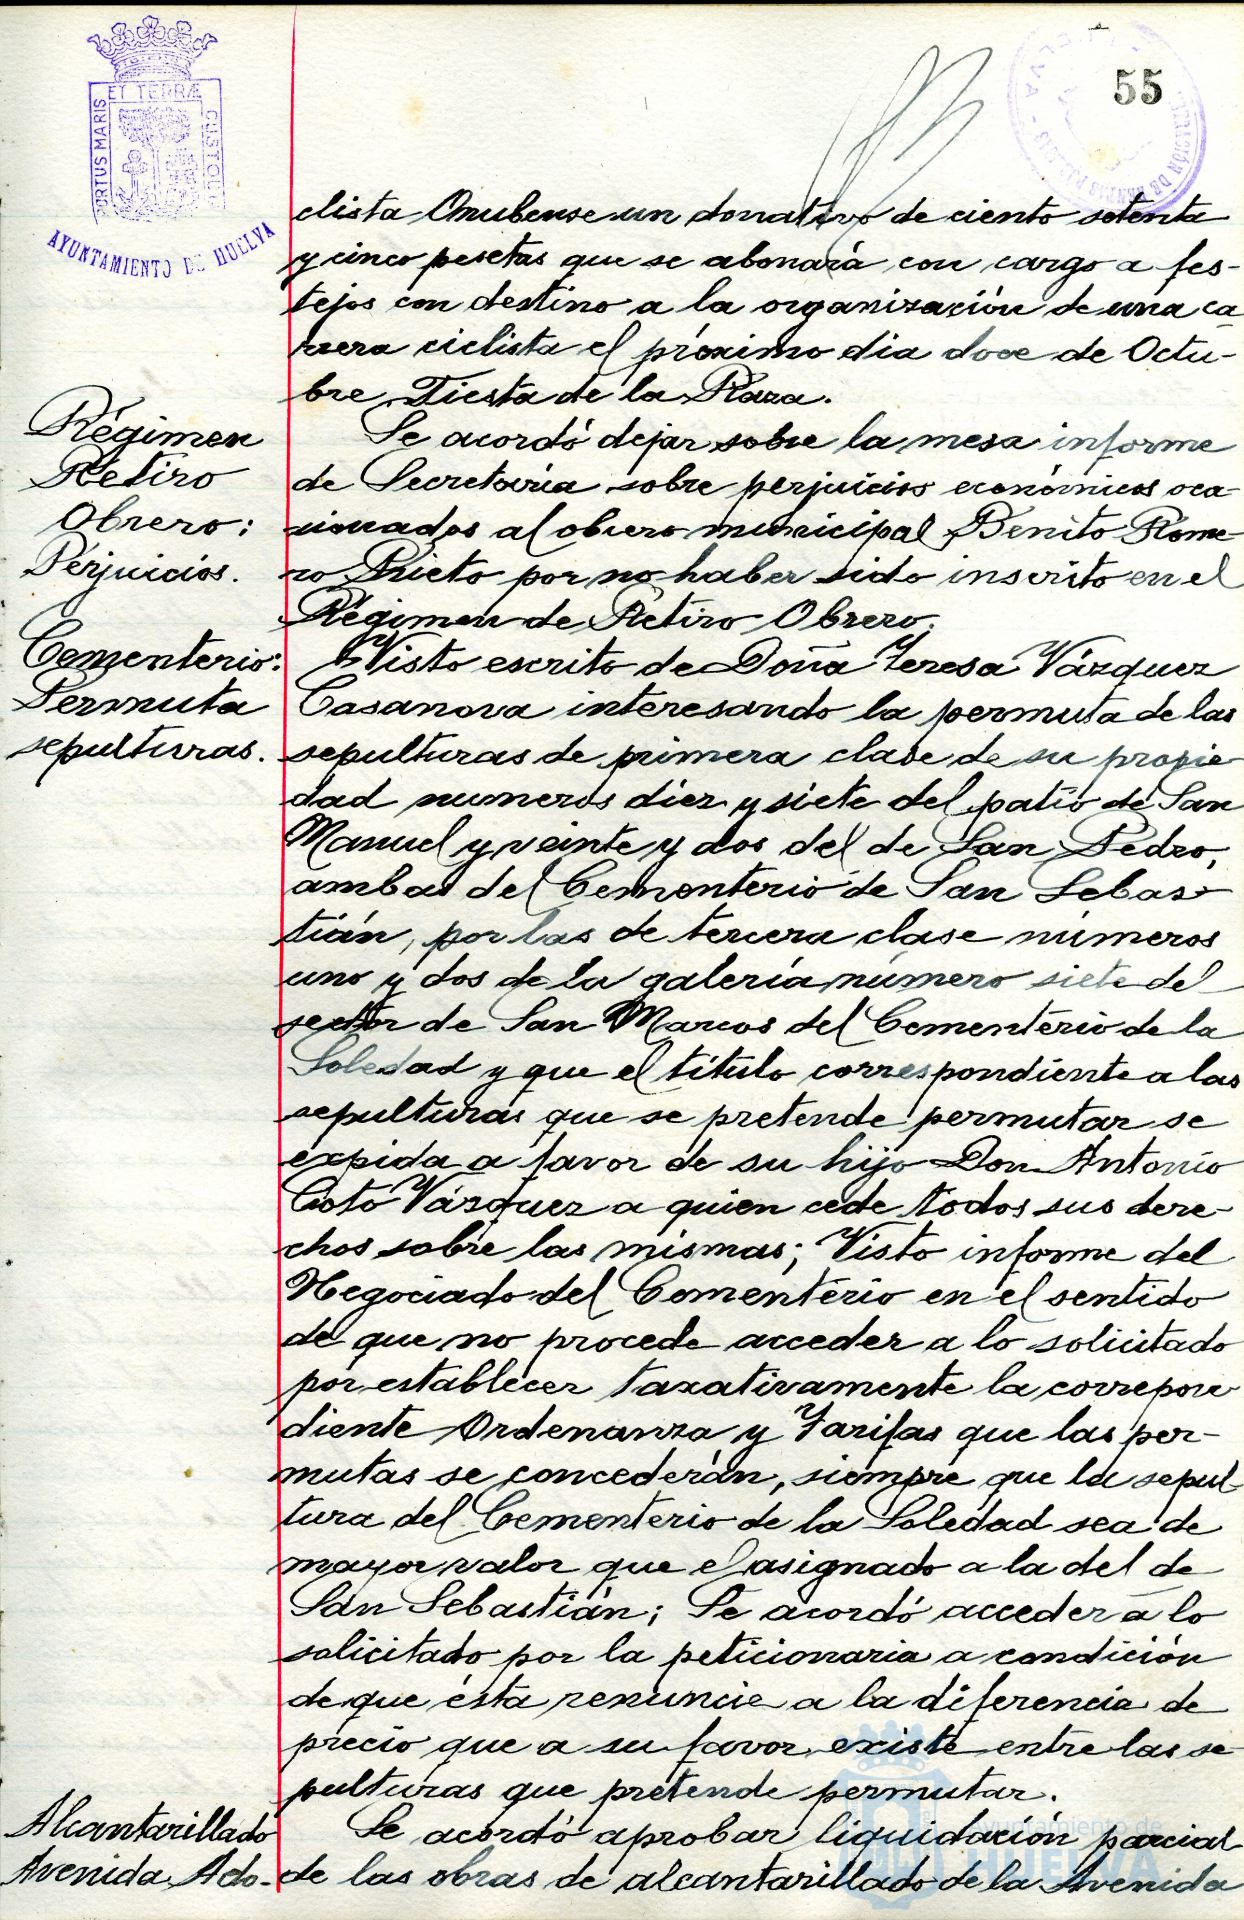 55
PORTUS MARIS ET TERRÆ CUSTODIA
AYUNTAMIENTO DE HUELVA
clista Onubense un donativo de ciento setenta
y cinco pesetas que se abonará con cargo a fes-
tejos con destino a la organización de una ca
rrera ciclista el próximo dia doce de Octu-
bre, Fiesta de la Raza.
Régimen
Retiro
Obrero:
Perjuicios.
Se acordó dejar sobre la mesa informe
de Secretaría sobre perjuicios económicos oca
sionados al obrero municipal Benito Rome
ro Prieto por no haber sido inscrito en el
Régimen de Retiro Obrero.
Cementerio:
Permuta
sepulturas.
Visto escrito de Doña Teresa Vázquez
Casanova interesando la permuta de las
sepulturas de primera clase de su propie
dad numeros diez y siete del patio de San
Manuel y veinte y dos del de San Pedro,
ambas del Cementerio de San Sebas-
tián, por las de tercera clase números
uno y dos de la galería número siete del
sector de San Marcos del Cementerio de la
Soledad y que el título correspondiente a las
sepulturas que se pretende permutar se
expida a favor de su hijo Don Antonio
Coto Vázquez a quien cede todos sus dere-
chos sobre las mismas; Visto informe del
Negociado del Cementerio en el sentido
de que no procede acceder a lo solicitado
por establecer taxativamente la correpon
diente Ordenanza y Tarifas que las per-
mutas se concederán, siempre que la sepul-
tura del Cementerio de la Soledad sea de
mayor valor que el asignado a la del de
San Sebastián; Se acordó acceder a lo
solicitado por la peticionaria a condición
de que ésta renuncie a la diferencia de
precio que a su favor existe entre las se
pulturas que pretende permutar.
Alcantarillado
Avenida Ado-
Se acordó aprobar liquidación parcial
de las obras de alcantarillado de la Avenida
Ayuntamiento de
HUELVA